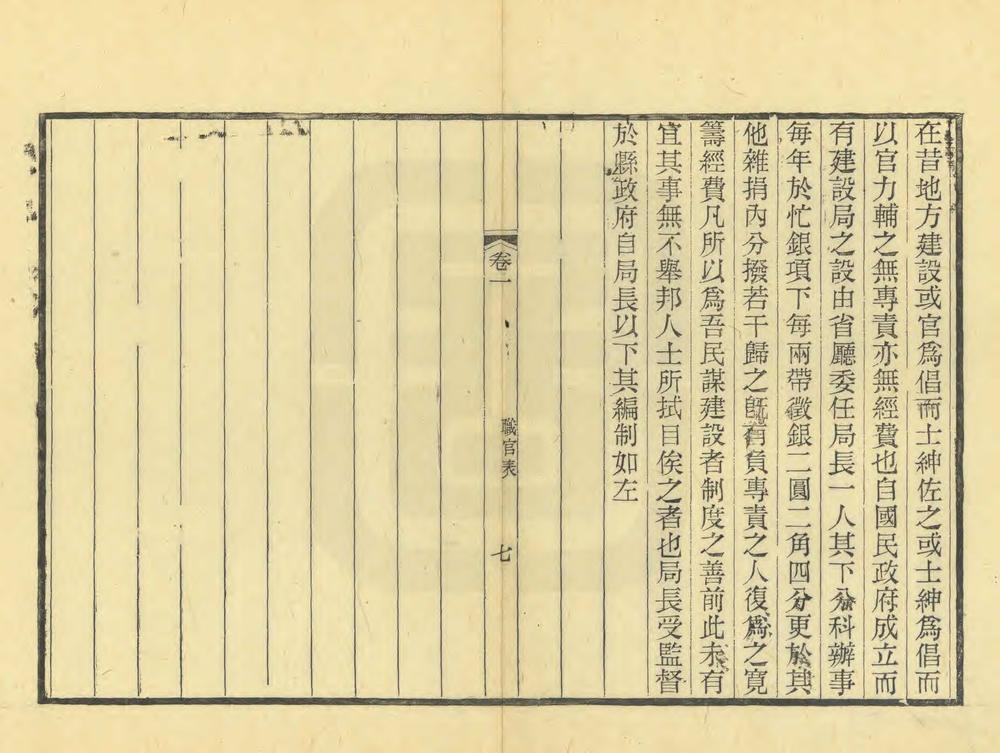 在昔地方建設或官爲倡而士紳佐之或士紳爲倡而
以官力輔之無專責亦無經費也自國民政府成立而
有建設局之設由省廳委任局長一人其下分科辦事
每年於忙銀項下每兩帶徵銀二圓二角四分更於其
他雜捐內分撥若干歸之旣有負專責之人復爲之寬
籌經費凡所以爲吾民謀建設者制度之善前此未有
宜其事無不舉邦人士所拭目俟之者也局長受監督
於縣政府自局長以下其編制如左
卷一
職官表
七